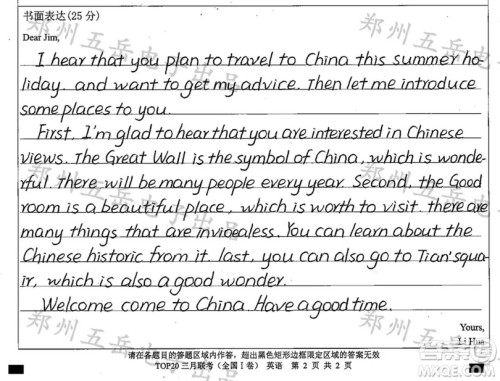 书面表达(25 分)
Dear Jim,
I hear that you plan to travel to China this summer ho-
liday. and want to get my advice. Then let me introduce
some places to you.
First, I'm glad to hear that you are interested in Chinese
views. The Great Wall is the symbol of China, which is wonde-
rful. there will be many people every year. Second, the Good
room is a beautiful place, which is worth to visit. there are
many things that are invioealess. You can learn about the
Chinese historic from it. last, you can also go to Tian'squa-
ir, which is also a good wonder.
Welcome come to China. Have a good time.
Yours,
Li Hua
请在各题目的答题区域内作答，超出黑色矩形边框限定区域的答案无效
TOP20 三月联考（全国 I 卷） 英语 第 2 页 共 2 页
郑州五岳电子出品
郑州五岳电子出品
郑州五岳电子出品
答案圈
MXQE.COM